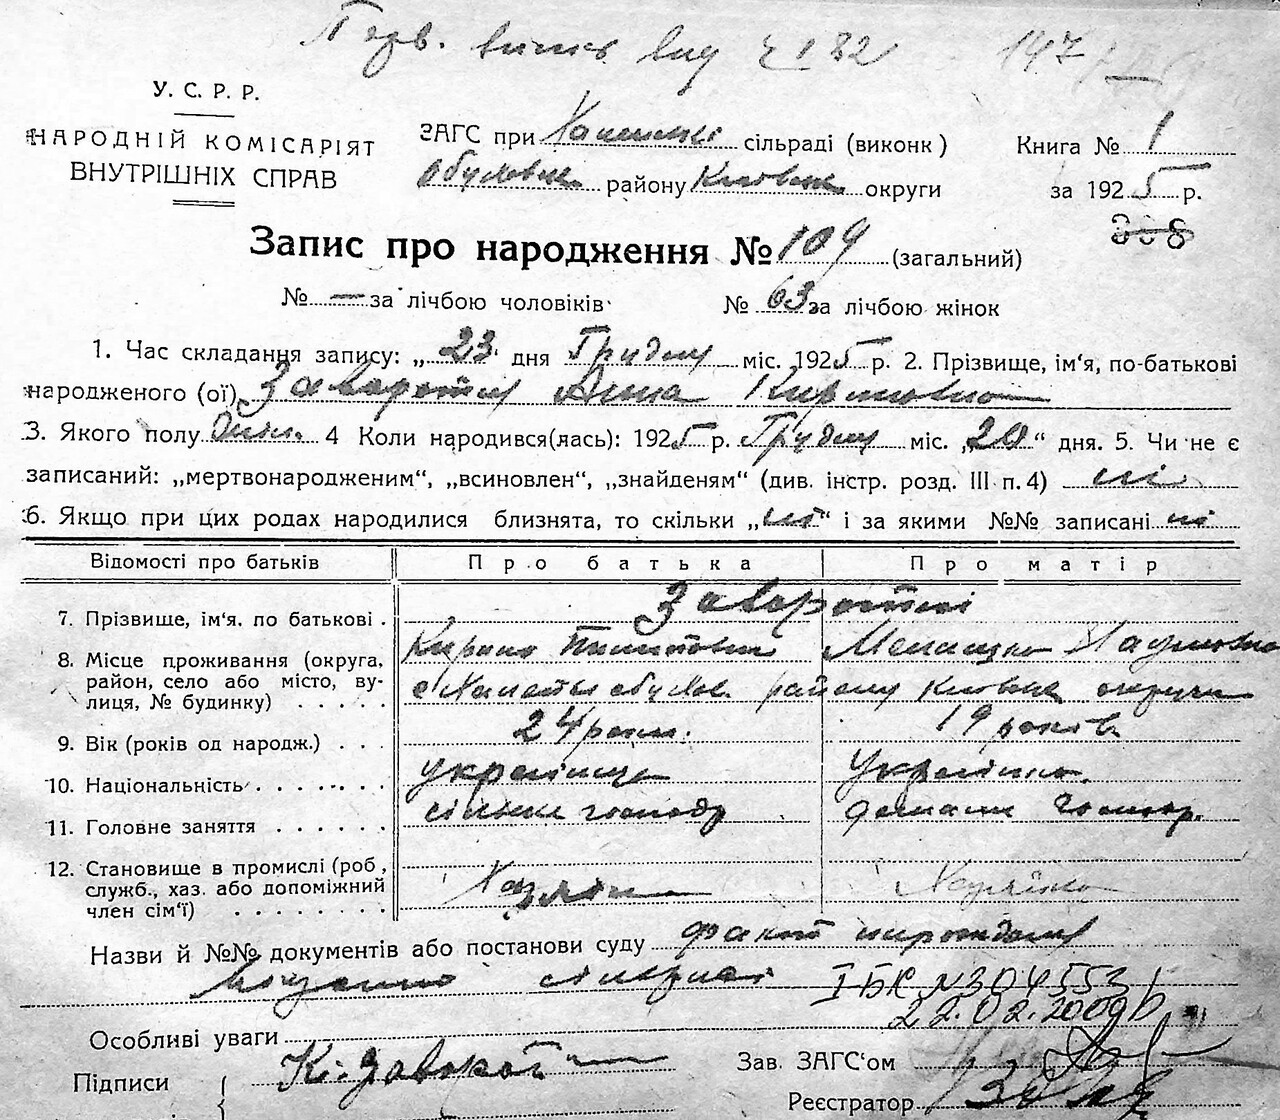 У. С. Р. Р.
НАРОДНІЙ КОМІСАРІЯТ
ВНУТРІШНІХ СПРАВ
ЗАГС при сільраді (виконк)
району округи
Книга № 1
за 1925 р.
308
Запис про народження № 109 (загальний)
№ — за лічбою чоловіків
№ 63 за лічбою жінок
1. Час складання запису: „23 дня Грудня міс. 1925 р. 2. Прізвище, ім'я, по-батькові
народженого (ої) Заворотня Анна Кирилівна
3. Якого полу 4 Коли народився(лась): 1925 р. Грудня міс. „20“ дня. 5. Чи не є
записаний: „мертвонародженим“, „всиновлен“, „знайденям“ (див. інстр. розд. III п. 4) ні
6. Якщо при цих родах народилися близнята, то скільки „ні“ і за якими №№ записані ні
Відомості про батьків
Про батька
Про матір
7. Прізвище, ім'я. по батькові .
Заворотні
Кирило Пилипович
8. Місце проживання (округа,
район, село або місто, ву-
лиця, № будинку) . . . . .
району округи
9. Вік (років од народж.) . . .
24 роки.
19 років.
10. Національність . . . . . . .
українець
Українка.
11. Головне заняття . . . . . .
сільське господ
домашн господ.
12. Становище в промислі (роб,
служб., хаз. або допоміжний
член сім'ї) . . . . . . . .
Хазяїн
Хазяйка
Назви й №№ документів або постанови суду факт народження
І БК №304553
22.02.2009
Особливі уваги
Підписи
К. Заворот
Зав. ЗАГС'ом
Реєстратор